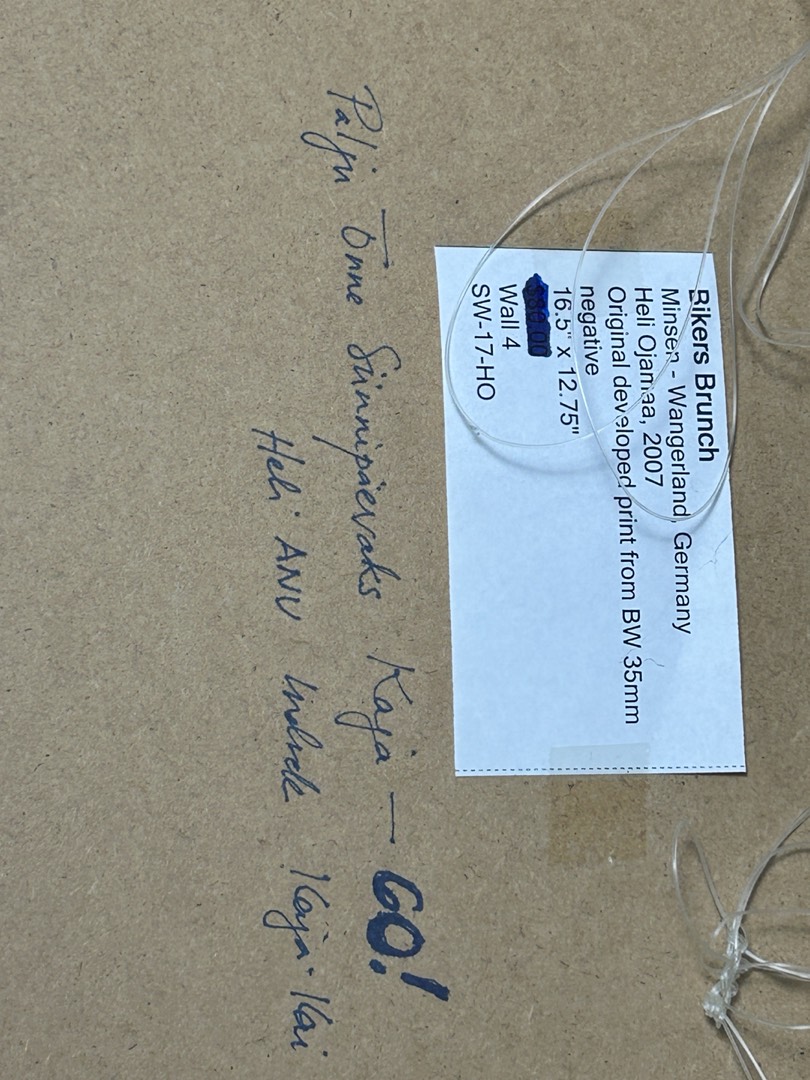 Bikers Brunch
Minsen - Wangerland, Germany
Heli Ojamaa, 2007
Original developed print from BW 35mm
negative
16.5" x 12.75"
Wall 4
SW-17-HO
Palju Õnne Sünnipäevaks Kaja — 60!
Heli ANU Indrek Kaja-Kai